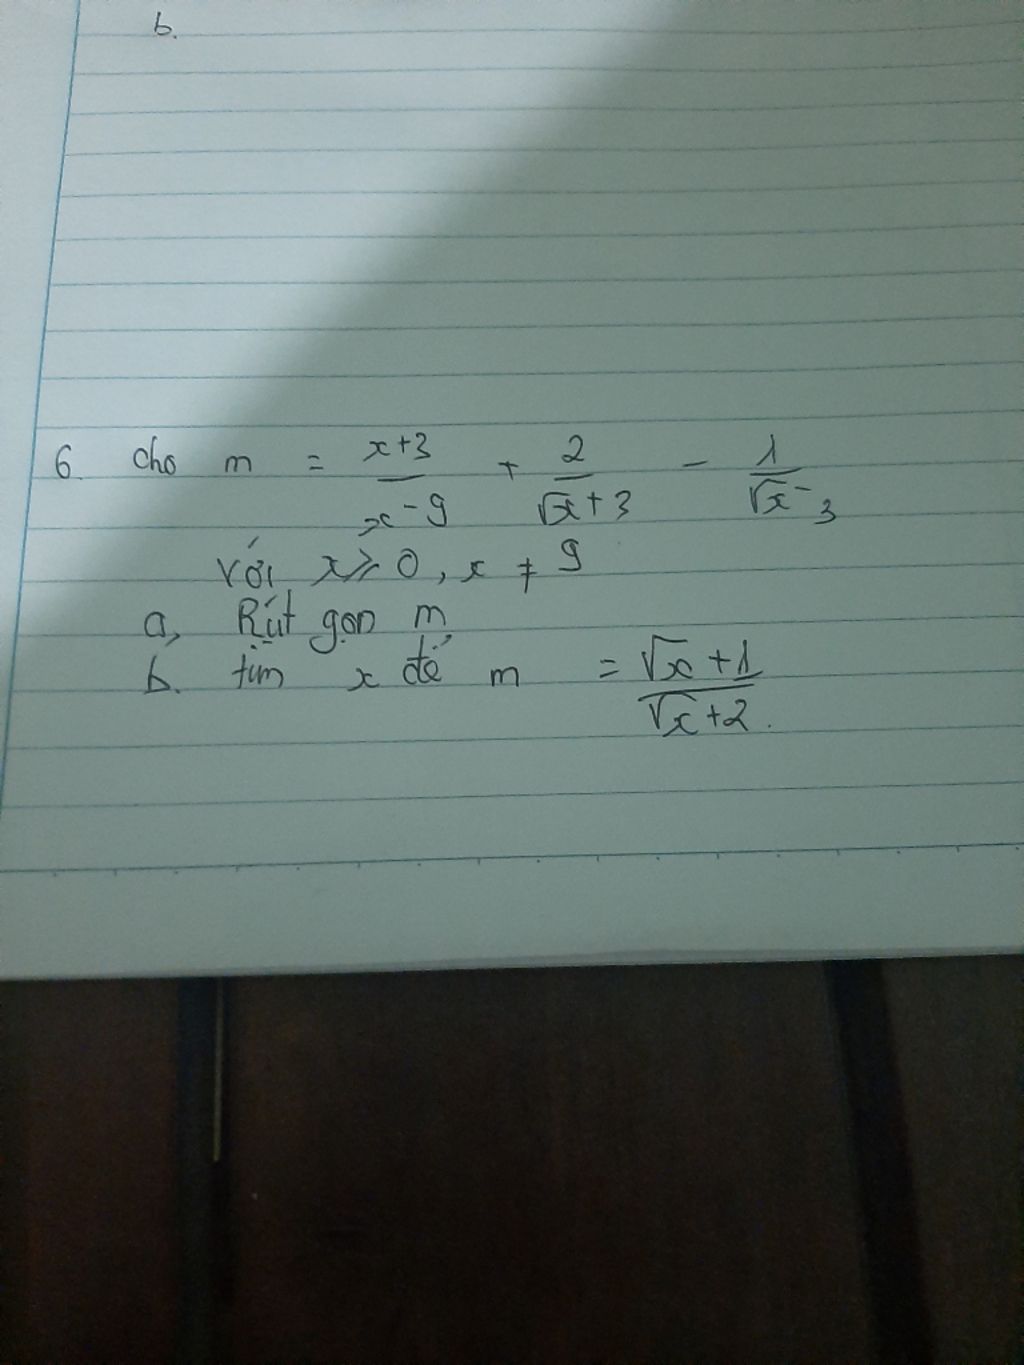 b.
6. cho m = \frac{x+3}{x-9} + \frac{2}{\sqrt{x}+3} - \frac{1}{\sqrt{x}-3}
với x ⩾ 0, x ≠ 9
a, Rút gọn m
b. tìm x để m = \frac{\sqrt{x}+1}{\sqrt{x}+2}.